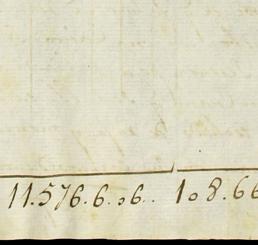 11.576.6.06.. 108.66